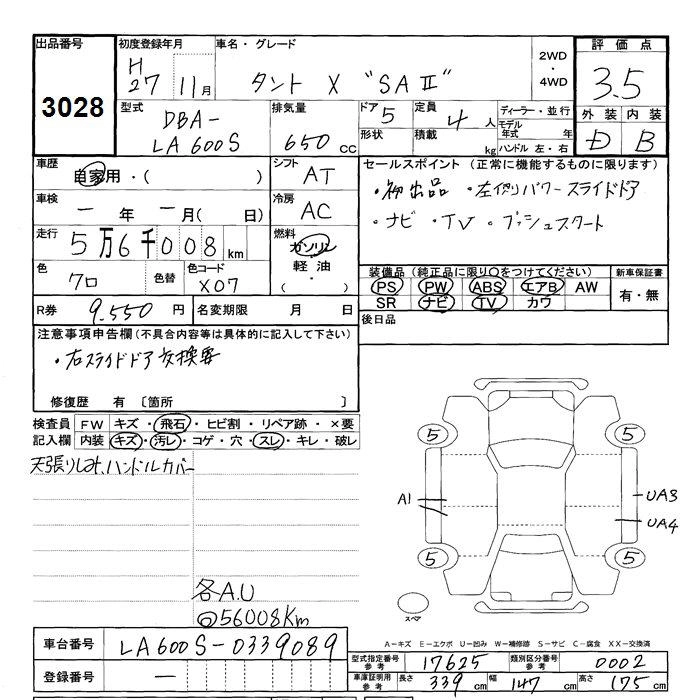 出品番号 初度登録年月 車名・グレード 評価点
3028 H27 11月 タント X "SAⅡ" 2WD・4WD 3.5
型式 DBA-LA600S 排気量 650cc ドア 5 定員 4人 ディーラー・並行
形状 積載 kg モデル年式 年 ハンドル 左・右 外装 D 内装 B
車歴 自家用・( ) シフト AT セールスポイント (正常に機能するものに限ります)
車検 ー年 ー月( 日) 冷房 AC ・初出品 ・左側パワースライドドア
走行 5万6千008km 燃料 ガソリン・軽油・( ) ・ナビ ・TV ・プッシュスタート
色 クロ 色替 色コード X07 装備品 (純正品に限り○をつけてください) 新車保証書
PS PW ABS エアB AW 有・無
R券 9,550円 名変期限 月 日 SR ナビ TV カワ
注意事項申告欄(不具合内容等は具体的に記入して下さい) 後日品
・右スライドドア交換要
修復歴 有 〔箇所 〕
検査員 FW キズ・飛石・ヒビ割・リペア跡・×要
記入欄 内装 キズ・汚レ・コゲ・穴・スレ・キレ・破レ
天張りしみ、ハンドルカバー
5 5
A1 UA3
UA4
5 5
各A.U
@56008Km
スペア
A-キズ E-エクボ U-凹み W-補修跡 S-サビ C-腐食 XX-交換済
車台番号 LA600S-0339089
登録番号 ー
型式指定番号 参考 17625 類別区分番号 参考 0002
車庫証明用 参考 長さ 339cm 幅 147cm 高さ 175cm